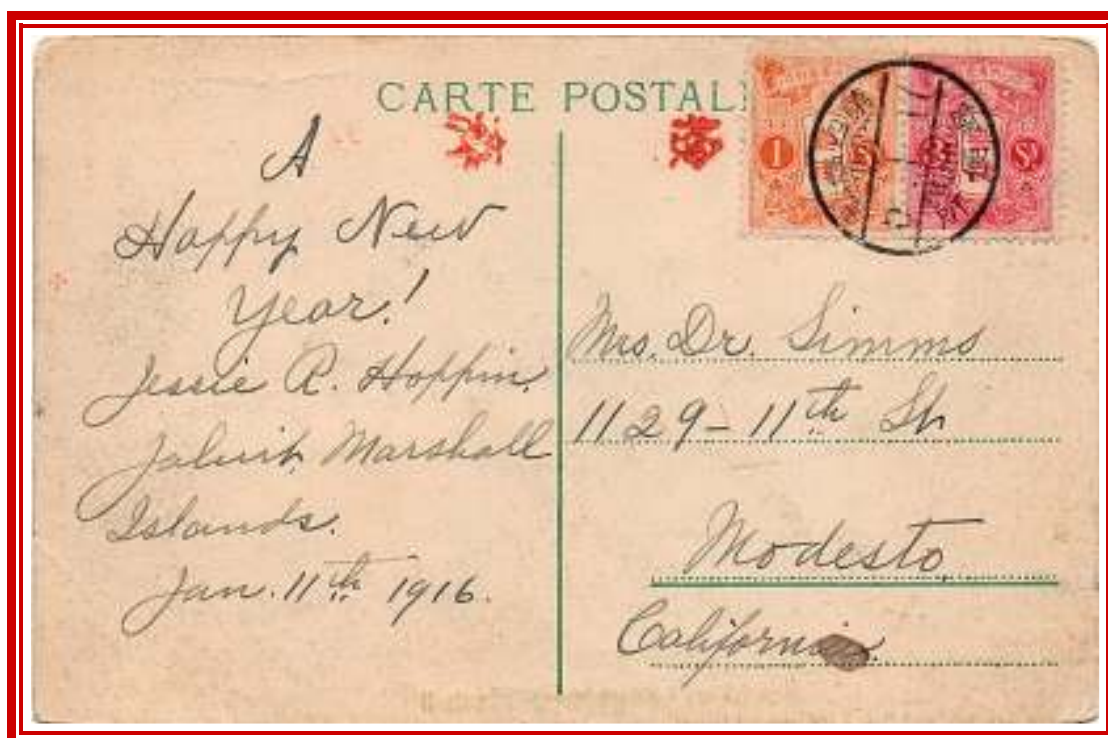 CARTE POSTAL
A
Happy New
Year!
Jessie R. Hoppin
Jaluit, Marshall
Islands.
Jan. 11th 1916.
1
Mrs. Dr. Simms
1129 - 11th St.
Modesto
California.